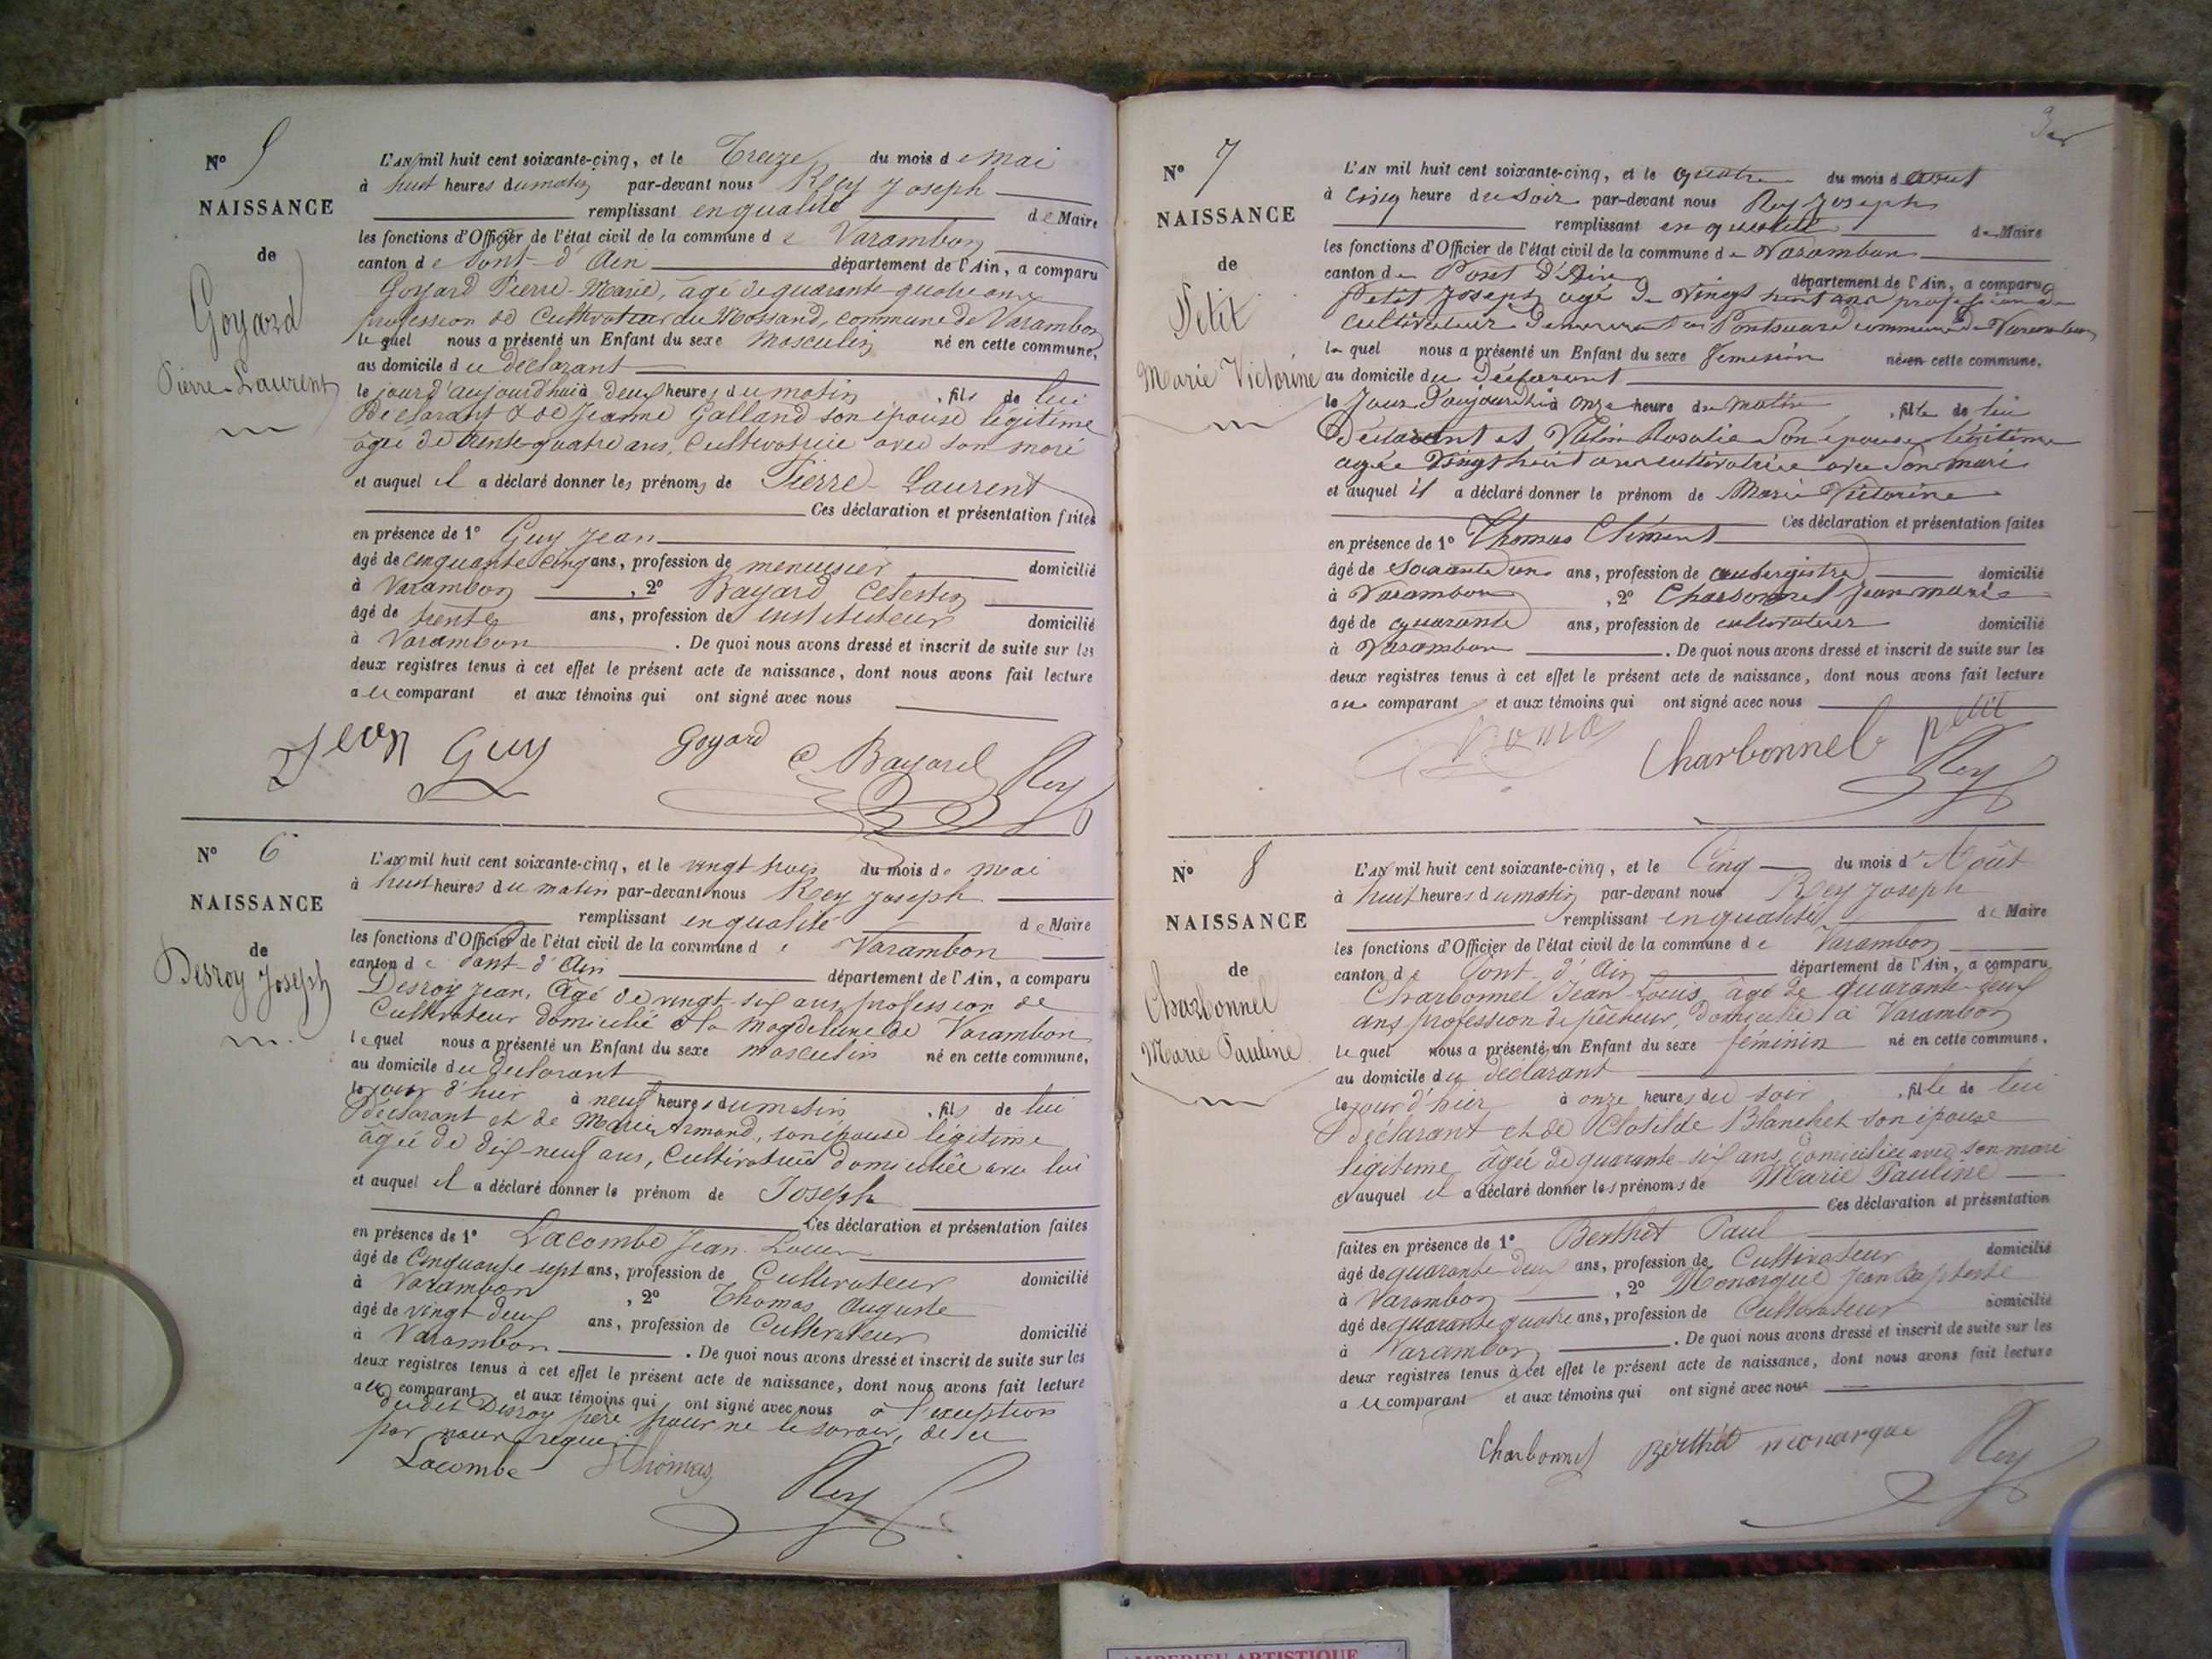 N° 5
NAISSANCE
de
Goyard
Pierre-Laurent
L'AN mil huit cent soixante-cinq, et le Treize du mois de Mai
à huit heures du matin par-devant nous Rey Joseph
remplissant en qualité de Maire
les fonctions d'Officier de l'état civil de la commune de Varambon
canton de Pont-d'Ain département de l'Ain, a comparu
Goyard Pierre-Marie, âgé de quarante quatre ans
profession de Cultivateur du Mossand, commune de Varambon
lequel nous a présenté un Enfant du sexe Masculin né en cette commune,
au domicile du déclarant
le jour d'aujourd'hui à deux heures du matin, fils de lui
Déclarant & de Jeanne Galland son épouse légitime
âgée de trente-quatre ans, Cultivatrice avec son mari
et auquel il a déclaré donner les prénoms de Pierre-Laurent
Ces déclaration et présentation faites
en présence de 1° Guy Jean
âgé de cinquante cinq ans, profession de menuisier domicilié
à Varambon, 2° Bayard Celestin
âgé de trente ans, profession de instituteur domicilié
à Varambon. De quoi nous avons dressé et inscrit de suite sur les
deux registres tenus à cet effet le présent acte de naissance, dont nous avons fait lecture
au comparant et aux témoins qui ont signé avec nous
Jean Guy Goyard C Bayard Rey
N° 6
NAISSANCE
de
Desroy Joseph
L'AN mil huit cent soixante-cinq, et le vingt trois du mois de mai
à huit heures du matin par-devant nous Rey Joseph
remplissant en qualité de Maire
les fonctions d'Officier de l'état civil de la commune de Varambon
canton de Pont-d'Ain département de l'Ain, a comparu
Desroy Jean, âgé de vingt-six ans, profession de
Cultivateur domicilié à la Magdeleine de Varambon
lequel nous a présenté un Enfant du sexe masculin né en cette commune,
au domicile du déclarant
le jour d'hier à neuf heures du matin, fils de lui
déclarant et de Marie Armand, son épouse légitime
âgée de dix neuf ans, Cultivatrice domiciliée avec lui
et auquel il a déclaré donner le prénom de Joseph
Ces déclaration et présentation faites
en présence de 1° Lacombe Jean
âgé de Cinquante sept ans, profession de Cultivateur domicilié
à Varambon, 2° Thomas Auguste
âgé de vingt deux ans, profession de Cultivateur domicilié
à Varambon. De quoi nous avons dressé et inscrit de suite sur les
deux registres tenus à cet effet le présent acte de naissance, dont nous avons fait lecture
au comparant et aux témoins qui ont signé avec nous à l'exception
dudit Desroy père pour ne le savoir, de ce
par nous requis
Lacombe Thomas Rey
3
N° 7
NAISSANCE
de
Petit
Marie Victorine
L'AN mil huit cent soixante-cinq, et le quatre du mois d'aout
à cinq heure du soir par-devant nous Rey Joseph
remplissant en qualité de Maire
les fonctions d'Officier de l'état civil de la commune de Varambon
canton de Pont d'Ain département de l'Ain, a comparu
Petit Joseph agé de vingt huit ans profession de
cultivateur demeurant au commune de Varambon
lequel nous a présenté un Enfant du sexe femenin né en cette commune.
au domicile du déclarant
le Jour d'aujourdhui à onze heure du matin, fille de lui
Déclarant et Rosalie Son épouse légitime
agée vingt huit ans cultivatrice avec Son mari
et auquel il a déclaré donner le prénom de Marie Victorine
Ces déclaration et présentation faites
en présence de 1° Thomas Clément
âgé de ans, profession de aubergiste domicilié
à Varambon, 2° Charbonnel Jean marie
âgé de quarante ans, profession de cultivateur domicilié
à Varambon. De quoi nous avons dressé et inscrit de suite sur les
deux registres tenus à cet effet le présent acte de naissance, dont nous avons fait lecture
au comparant et aux témoins qui ont signé avec nous
Charbonnel petit
Rey
N° 8
NAISSANCE
de
Charbonnel
Marie Pauline
L'AN mil huit cent soixante-cinq, et le Cinq du mois d'Août
à huit heures du matin par-devant nous Rey Joseph
remplissant en qualité de Maire
les fonctions d'Officier de l'état civil de la commune de Varambon
canton de Pont-d'Ain département de l'Ain, a comparu
Charbonnel Jean-Louis âgé de quarante-deux
ans, profession de pêcheur, domicilié à Varambon
lequel nous a présenté un Enfant du sexe féminin né en cette commune.
au domicile du déclarant
le jour d'hier à onze heures du soir, fille de lui
déclarant et de Clotilde Blanchet son épouse
légitime, âgée de quarante-six ans, domiciliée avec son mari
et auquel il a déclaré donner les prénoms de Marie Pauline
Ces déclaration et présentation
faites en présence de 1° Berthet Paul
âgé de quarante deux ans, profession de Cultivateur domicilié
à Varambon, 2° Monarque Jean Baptiste
âgé de quarante quatre ans, profession de Cultivateur domicilié
à Varambon. De quoi nous avons dressé et inscrit de suite sur les
deux registres tenus à cet effet le présent acte de naissance, dont nous avons fait lecture
au comparant et aux témoins qui ont signé avec nous
Charbonnel Berthet monarque Rey
AMBERIEU ARTISTIQUE